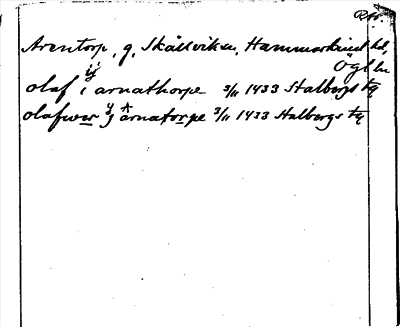 Rtr.
Arentorp, g, Skällvikens, Hammarkind hd,
Ögl ln
y
olaf i arnathorpe 3/11 1433 Stalbergs tq
olafwer y arnatorpe 3/11 1433 Stalbergs tq